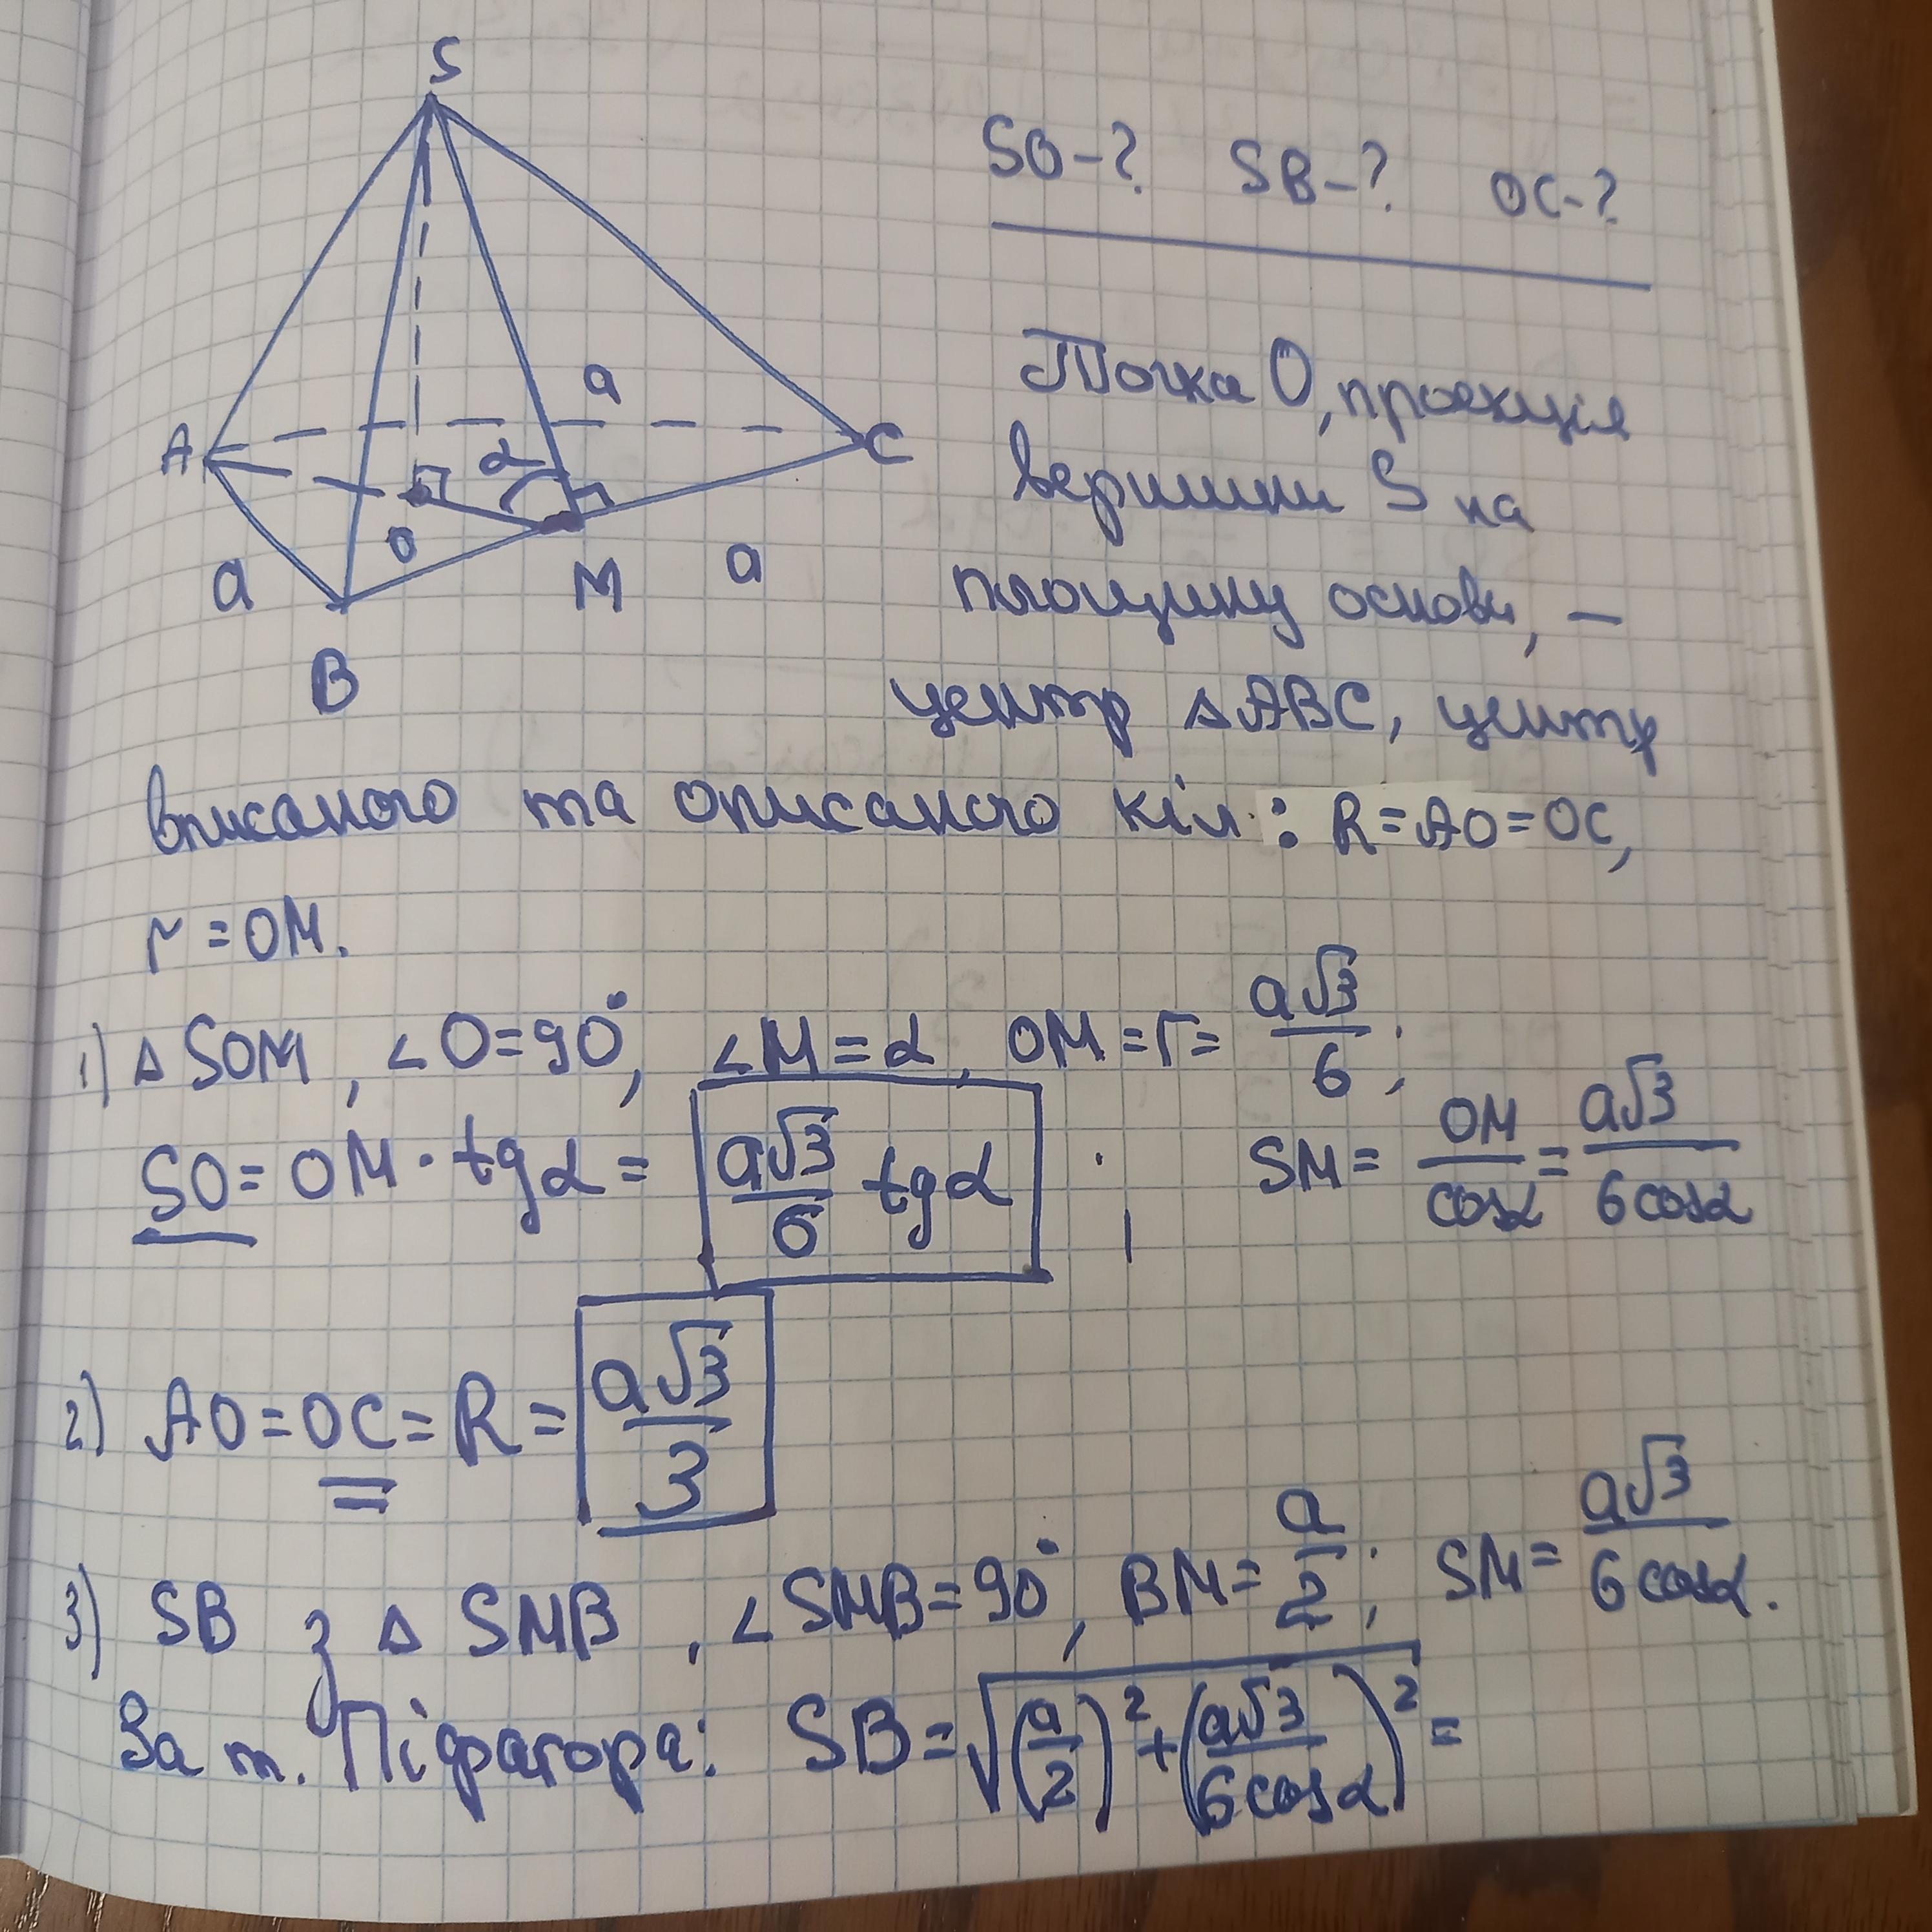 S
SO-? SB-? OC-?
a
A
α
C
O
M
a
a
B
Точка O, проекція
вершини S на
площину основи, –
центр ΔABC, центр
вписаного та описаного кіл: R=AO=OC,
r=OM.
1) Δ SOM, ∠O=90°, ∠M=α, OM=r= a√3/6;
SO=OM·tgα= a√3/6 tgα; SM= OM/cosα = a√3/6cosα
2) AO=OC=R= a√3/3
3) SB з Δ SMB, ∠SMB=90°, BM= a/2; SM= a√3/6cosα.
За т. Піфагора: SB=√((a/2)²+(a√3/6cosα)²)=